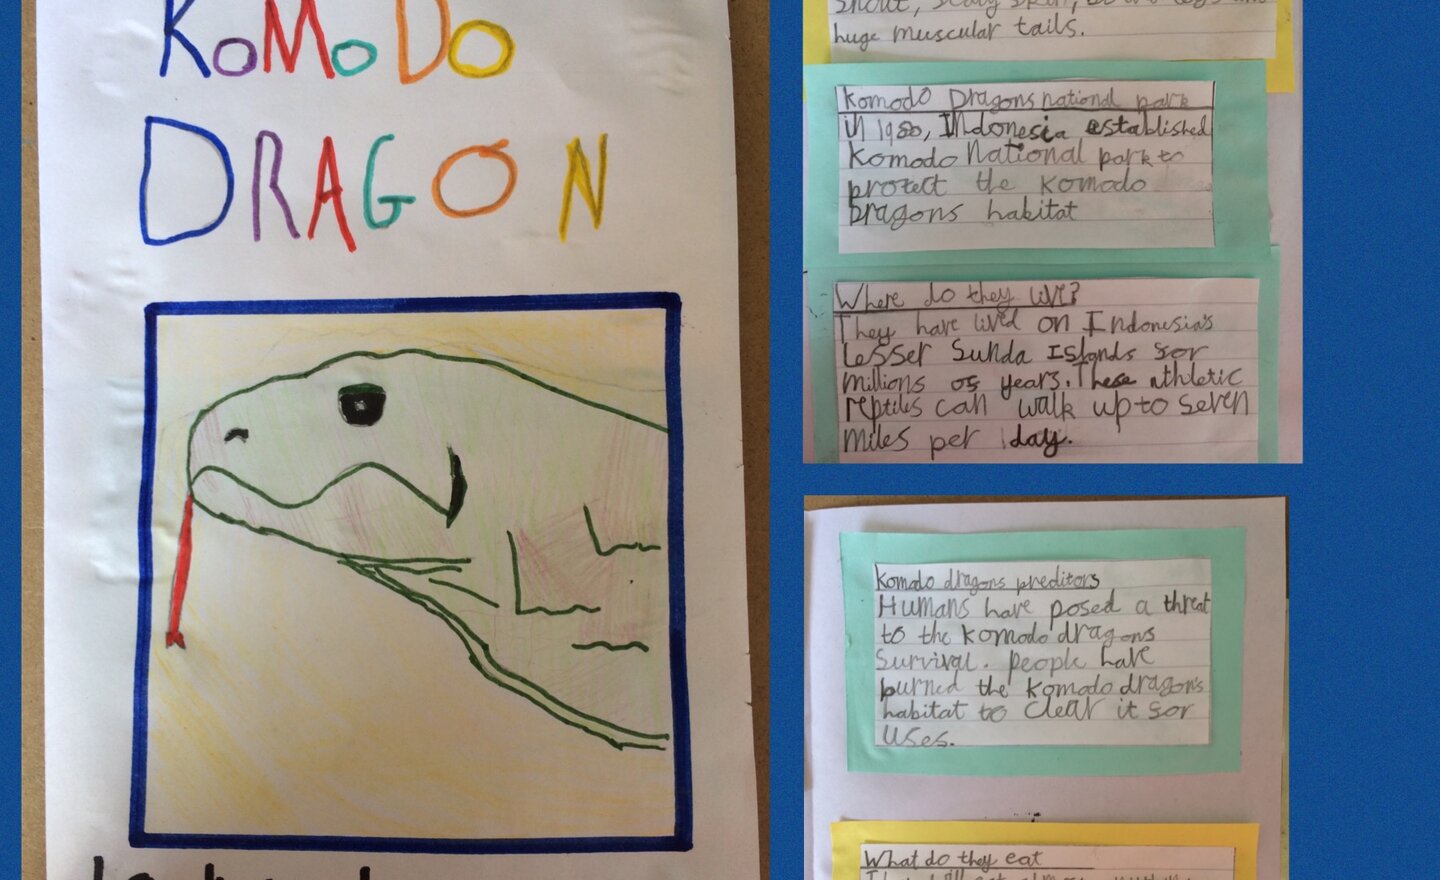 KoMoDo
DRAGON
snout, scaly skin,
huge muscular tails.
Komodo Dragons national park
in 1980, Indonesia established
Komodo National park to
protect the Komodo
Dragons habitat
Where do they live?
They have lived on Indonesia's
Lesser Sunda Islands for
millions of years. These athletic
reptiles can walk up to seven
miles per day.
Komodo dragons preditors
Humans have posed a threat
to the Komodo dragons
Survival. people have
burned the Komodo dragon's
habitat to clear it for
uses.
What do they eat